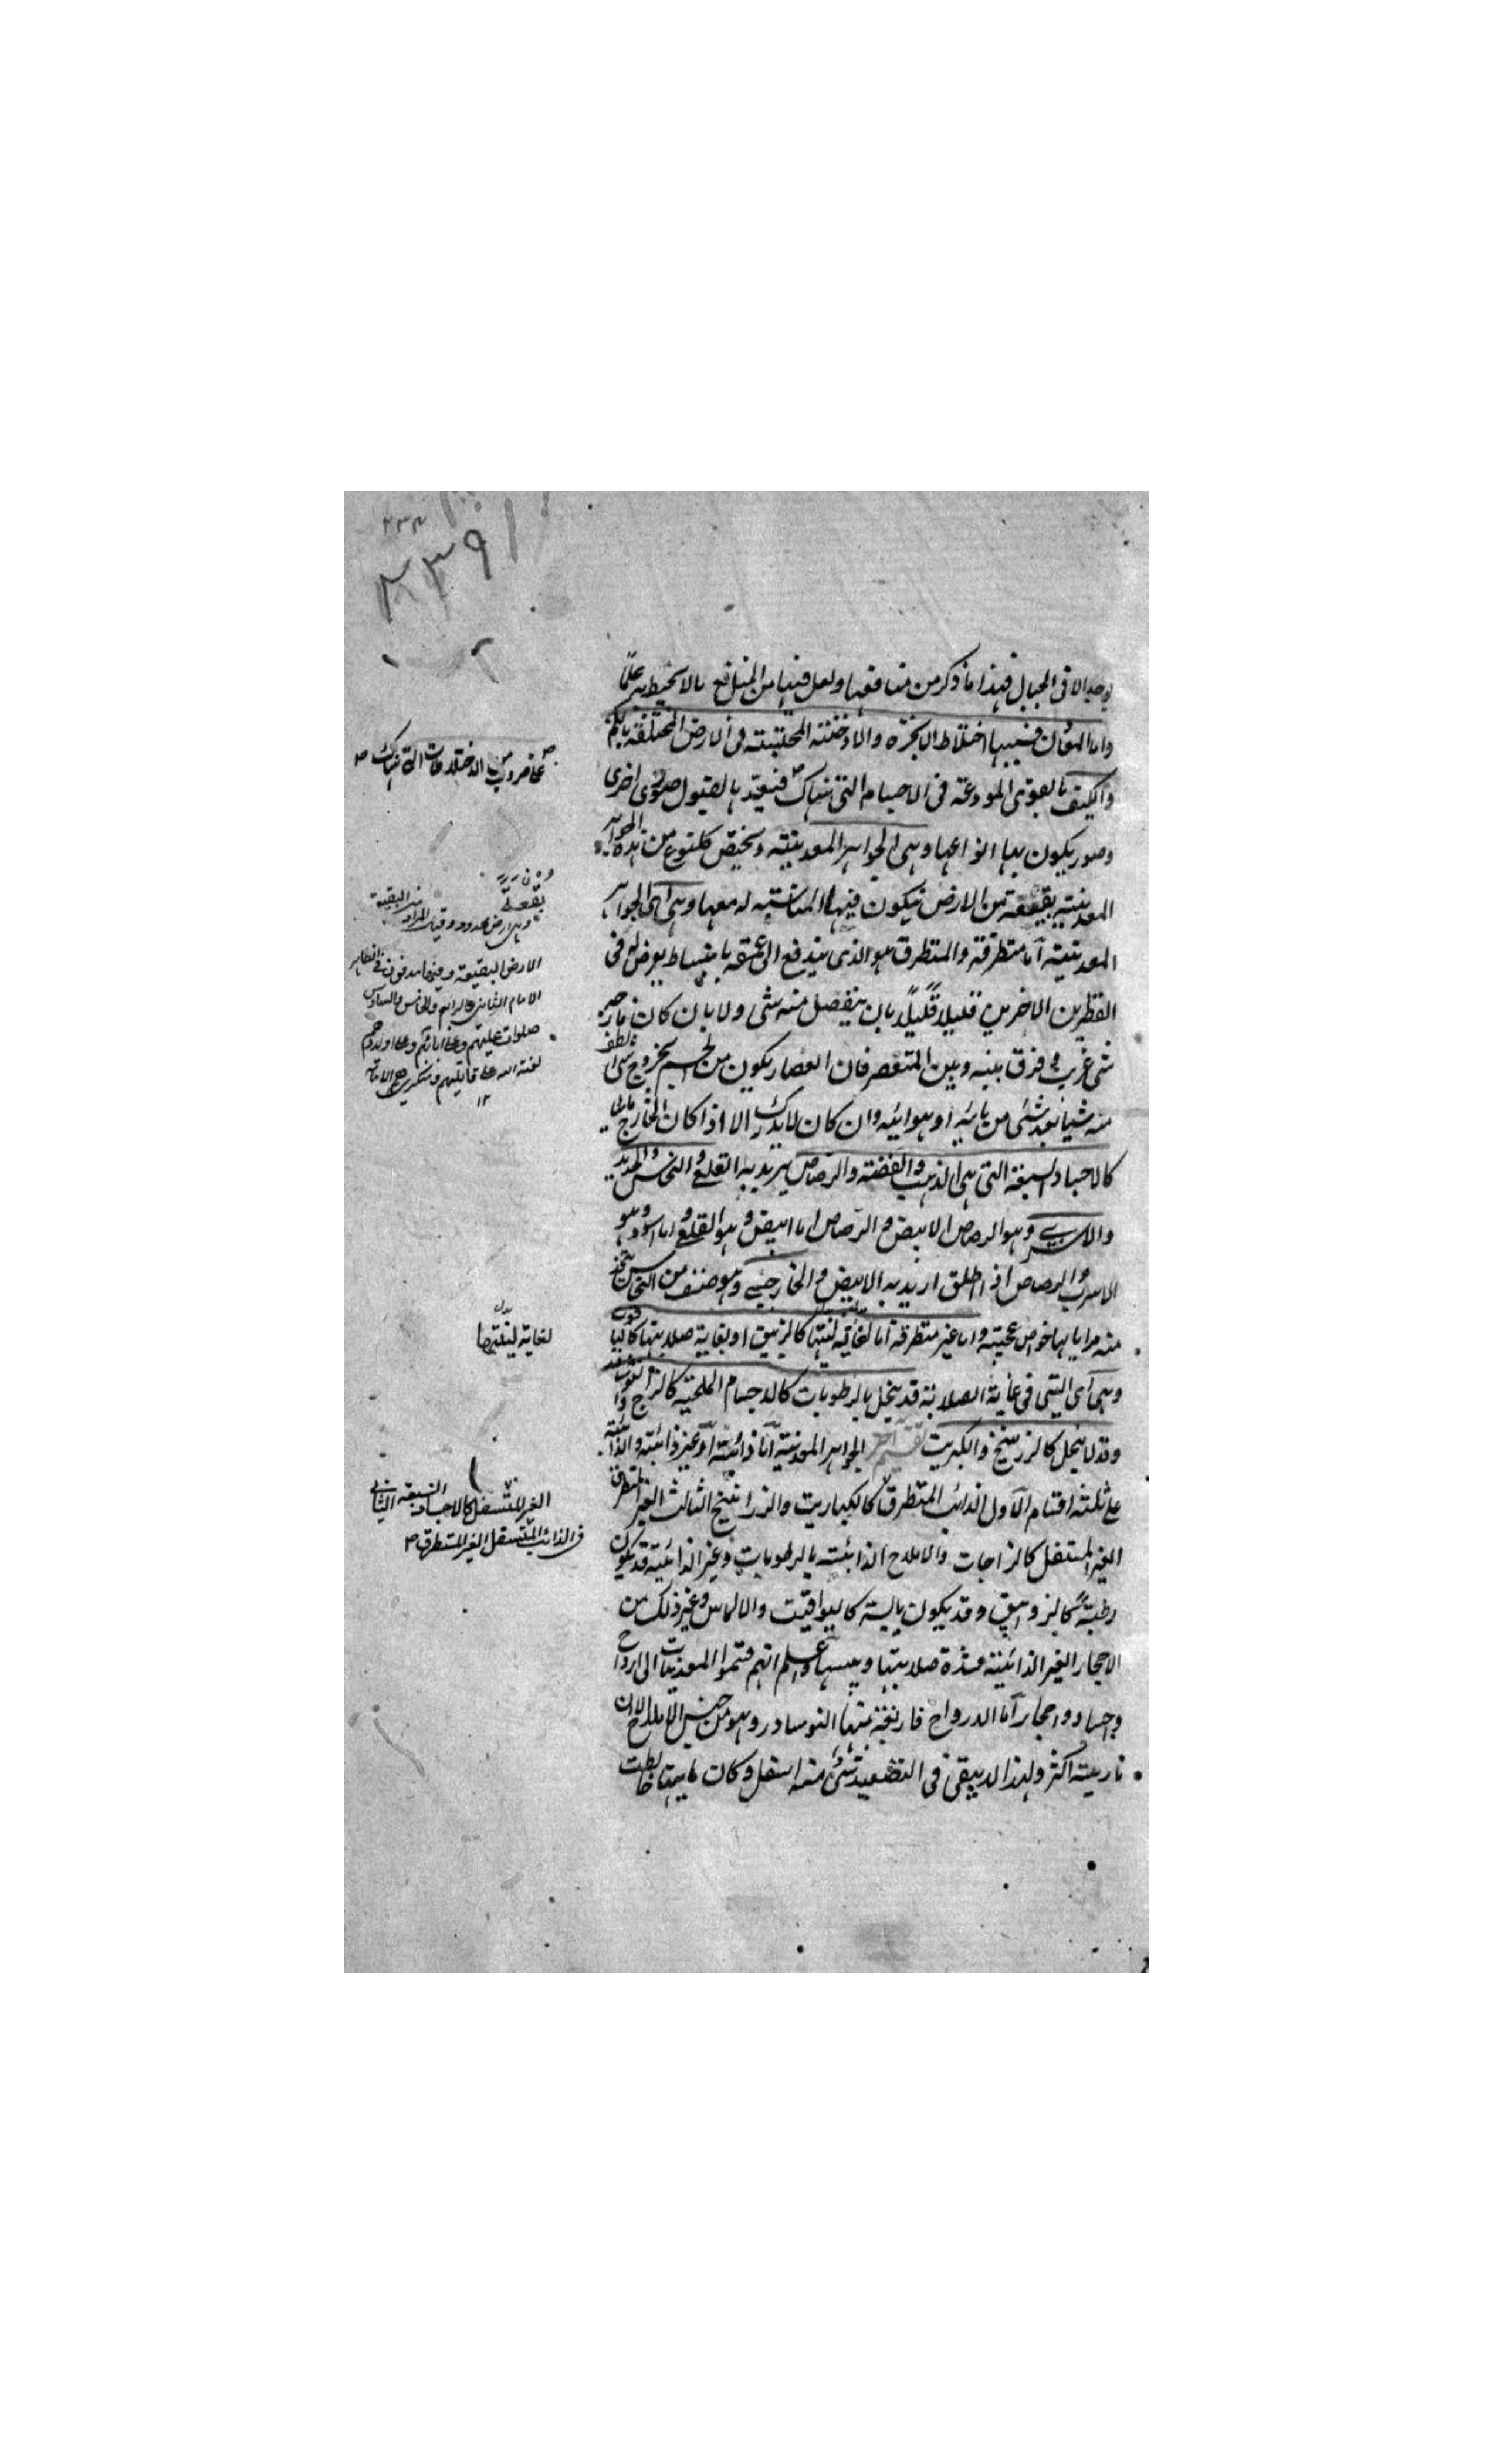 ٢٣٨
٣٣٩
يوجد الا فى الجبال فهذا ما ذكر من منافعها ولعل فيها من المنافع ما لا نحيط به علمًا
واما المعادن فسببها اختلاط الابخرة والادخنة المحتبسة فى الارض المختلفة بالكم
والكيف بالقوى المودعة فى الاجسام التى هناك فيعدها لقبول قوى اخرى
وصور يكون بها انواعها وهى الجواهر المعدنية ويختص كل نوع من هذه الجواهر
المعدنية ببقعة من الارض يكون فيها لمناسبة له معها وهى اى الجواهر
المعدنية اما متطرقة والمتطرق هو الذى يندفع الى عمقه بانبساط يعرض له فى
القطرين الاخرين قليلًا قليلًا بان ينفصل منه شى ولا بان كان
شى غريب فرق بينه وبين المنعصر فان العصار يكون من الجسم بخروج شى
منه شيئا بعد شئ من مائية او هوائية وان كان لا يدرك الا اذا كان الخارج مائى
كالاجساد السبعة التى هى الذهب والفضة والرصاص يريد به القلعى والنحاس والحديد
والاسرب وهو الرصاص الابيض والرصاص اما ابيض وهو القلعى واما اسود وهو
الاسرب والرصاص اذا اطلق اريد به الابيض والخارصينى وهو صنف من النحاس يتخذ
منه مرايا لها خواص عجيبة واما غير متطرقة اما لغاية لينتها كالزيبق او لغاية صلابتها كاليا
وهى اى التى فى غاية الصلابة قد ينحل بالرطوبات كالاجسام الملحية كالزاج والنوشادر
وقد لا ينحل كالزرنيخ والكبريت تقسيم آخر الجواهر المعدنية اما ذائبة او غير ذائبة والذائبة
على ثلثة اقسام الاول الذائب المتطرق كالكباريت والزرانيخ الثالث الغير المتطرق
الغير المشتعل كالزاجات والاملاح الذائبة بالرطوبات وغير الذائبة قد يكون
رطبة كالزوابيق وقد يكون يابسة كاليواقيت والالماس وغير ذلك من
الاحجار الغير الذائبة لشدة صلابتها ويبسها واعلم انهم قسموا المعدنيات الى ارواح
واجساد واحجار اما الارواح فاربعة منها النوسادر وهو من جنس الاملاح الا ان
ناريته اكثر ولهذا لا يبقى فى التصعيد شئ منه اسفل وكان مائيتها خالطت
على ضروب من الاختلاطات التى هناك ص
بقعة
وهى ارض محدودة وقيل المراد من البقعة
الارض البقيعة وفيها مدفون
الامام الثانى والرابع والخامس والسادس
صلوات عليهم وعلى ابائهم وعلى اولادهم
لعنة الله على قاتليهم ومنكرى
١٢
بدل
لغاية لينتها
الغير المشتعل كالاجساد السبعة الثانى
فى الذائب المشتعل الغير المتطرق ص